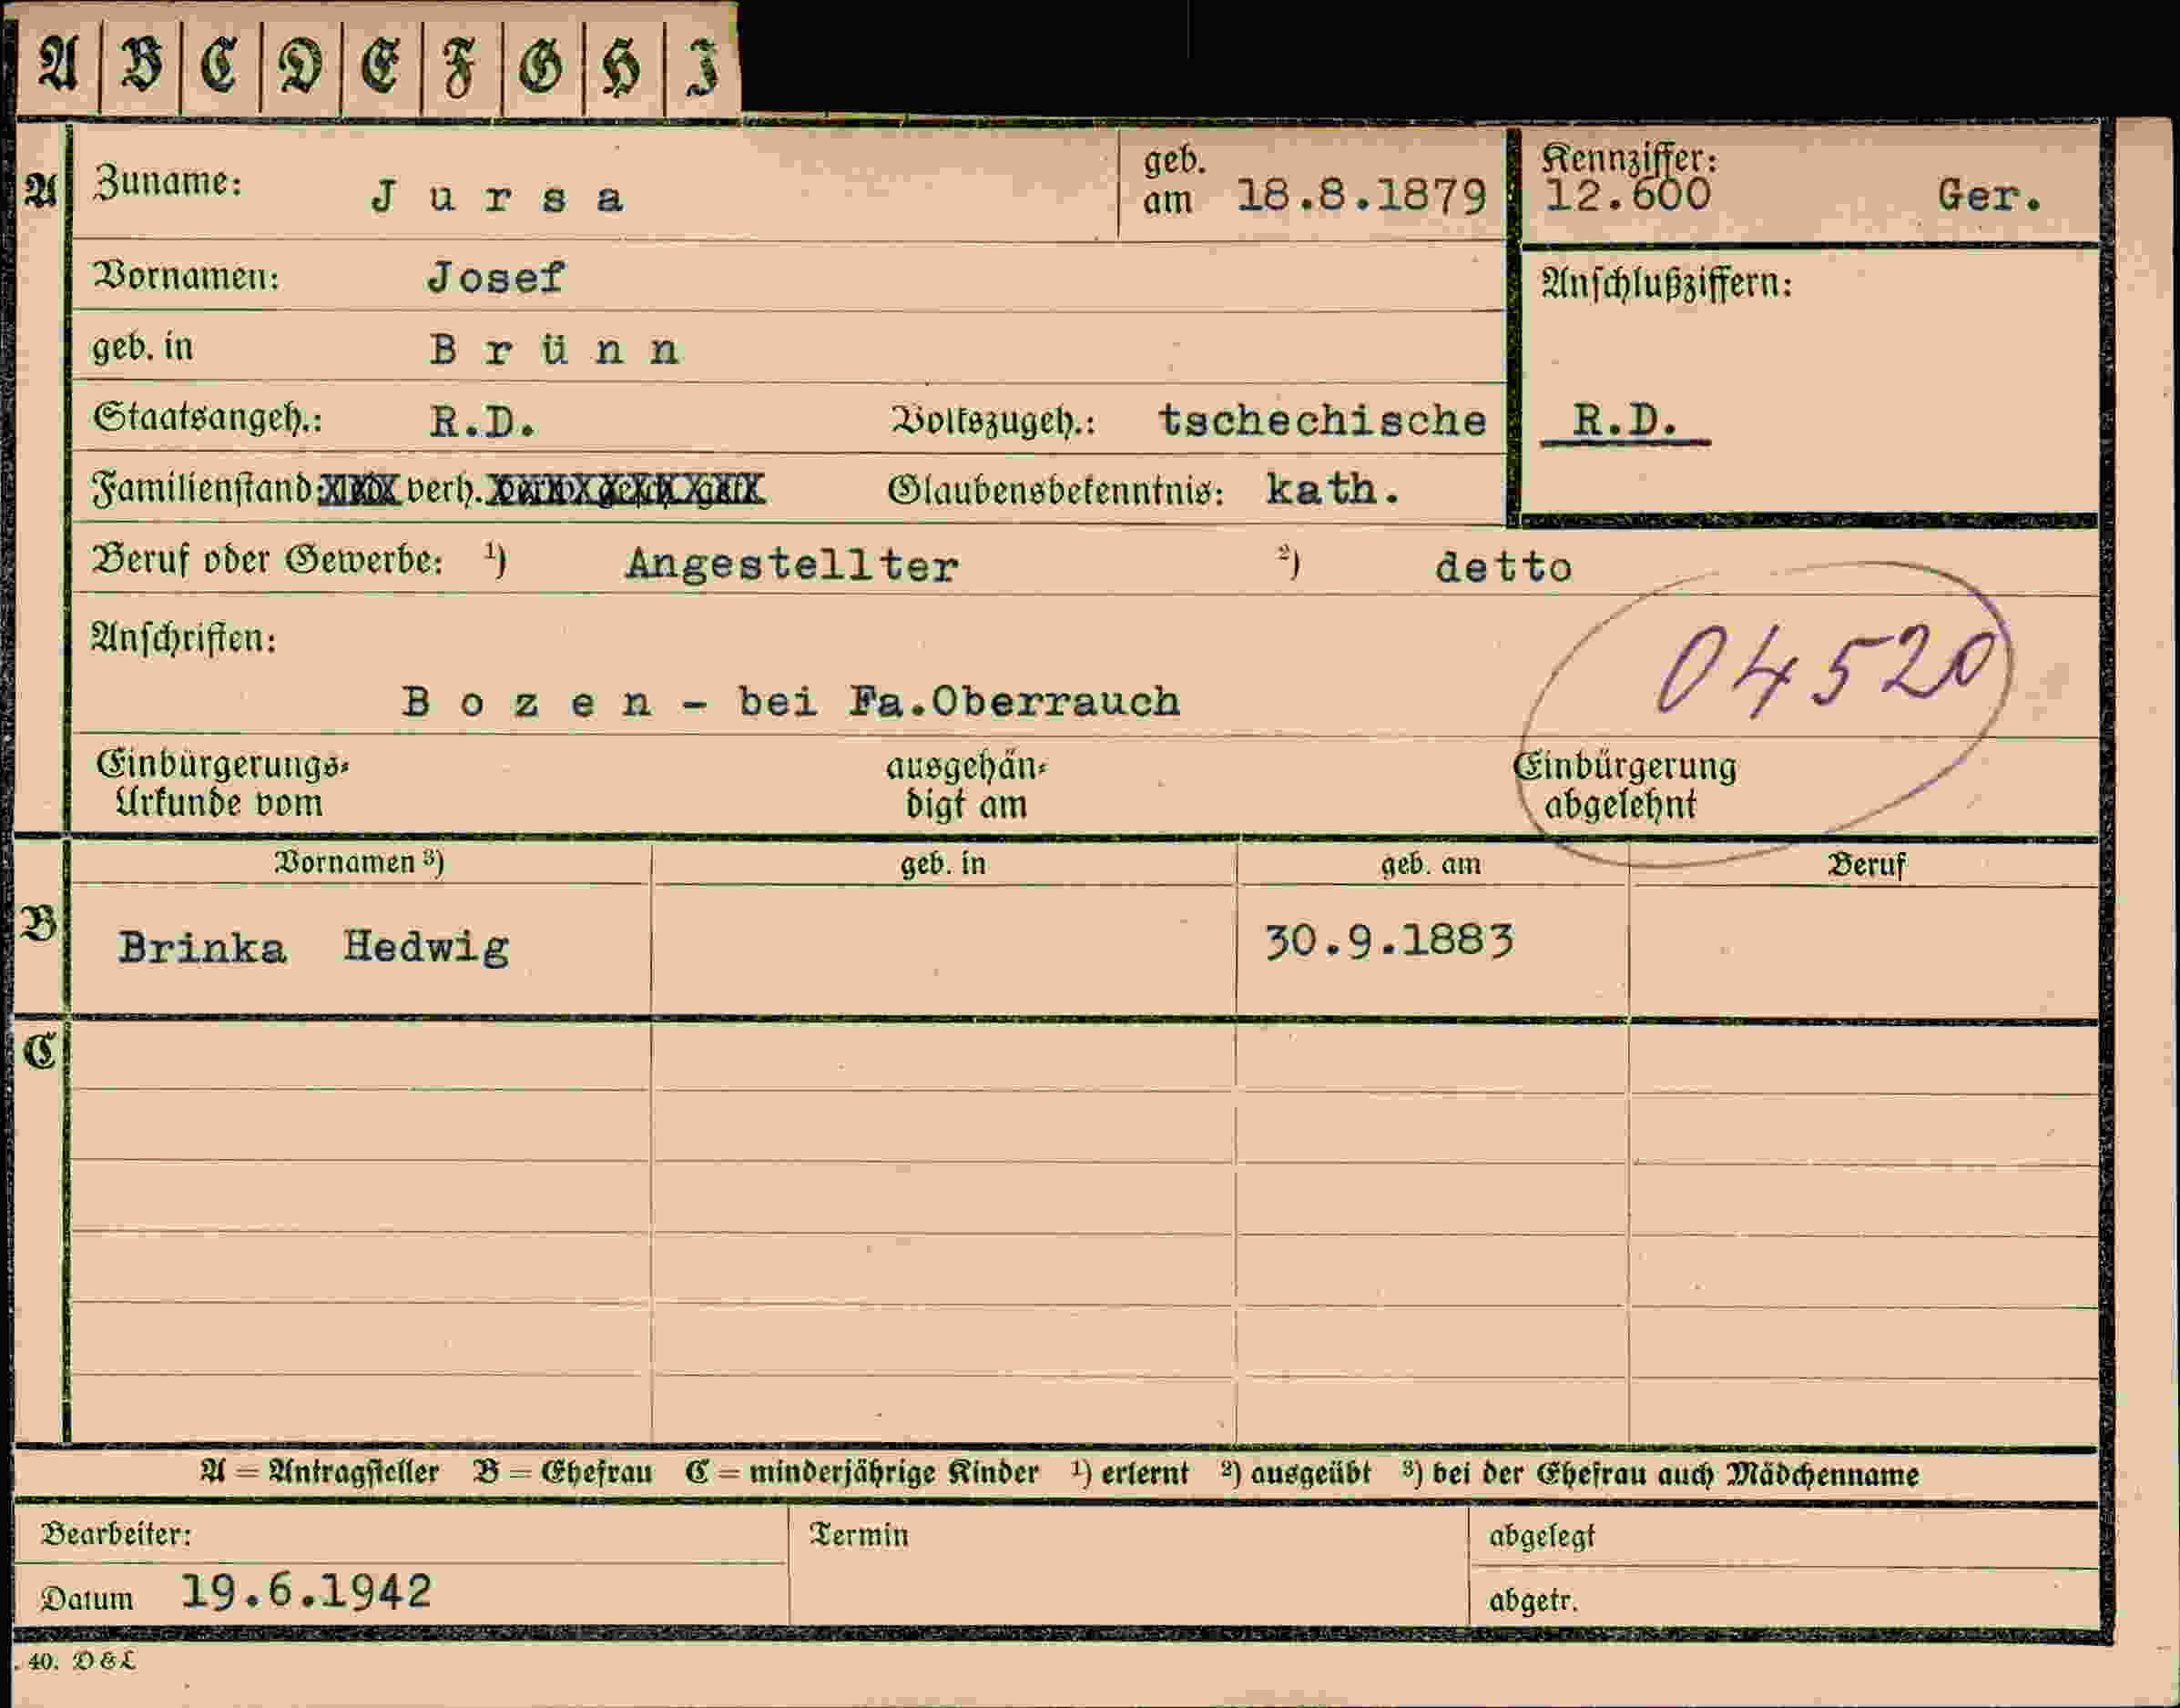 A B C D E F G H I
A Zuname: Jursa geb. am 18.8.1879
Kennziffer: 12.600 Ger.
Vornamen: Josef
Anschlußziffern:
geb. in Brünn
Staatsangeh.: R.D. Volkszugeh.: tschechische R.D.
Familienstand: verh. Glaubensbekenntnis: kath.
Beruf oder Gewerbe: ¹) Angestellter ²) detto
Anschriften:
04520
Bozen - bei Fa.Oberrauch
Einbürgerungs- ausgehän- Einbürgerung
Urkunde vom digt am abgelehnt
Vornamen ³) geb. in geb. am Beruf
B Brinka Hedwig 30.9.1883
C
A = Antragsteller B = Ehefrau C = minderjährige Kinder ¹) erlernt ²) ausgeübt ³) bei der Ehefrau auch Mädchenname
Bearbeiter: Termin abgelegt
Datum 19.6.1942 abgetr.
. 40. D & L